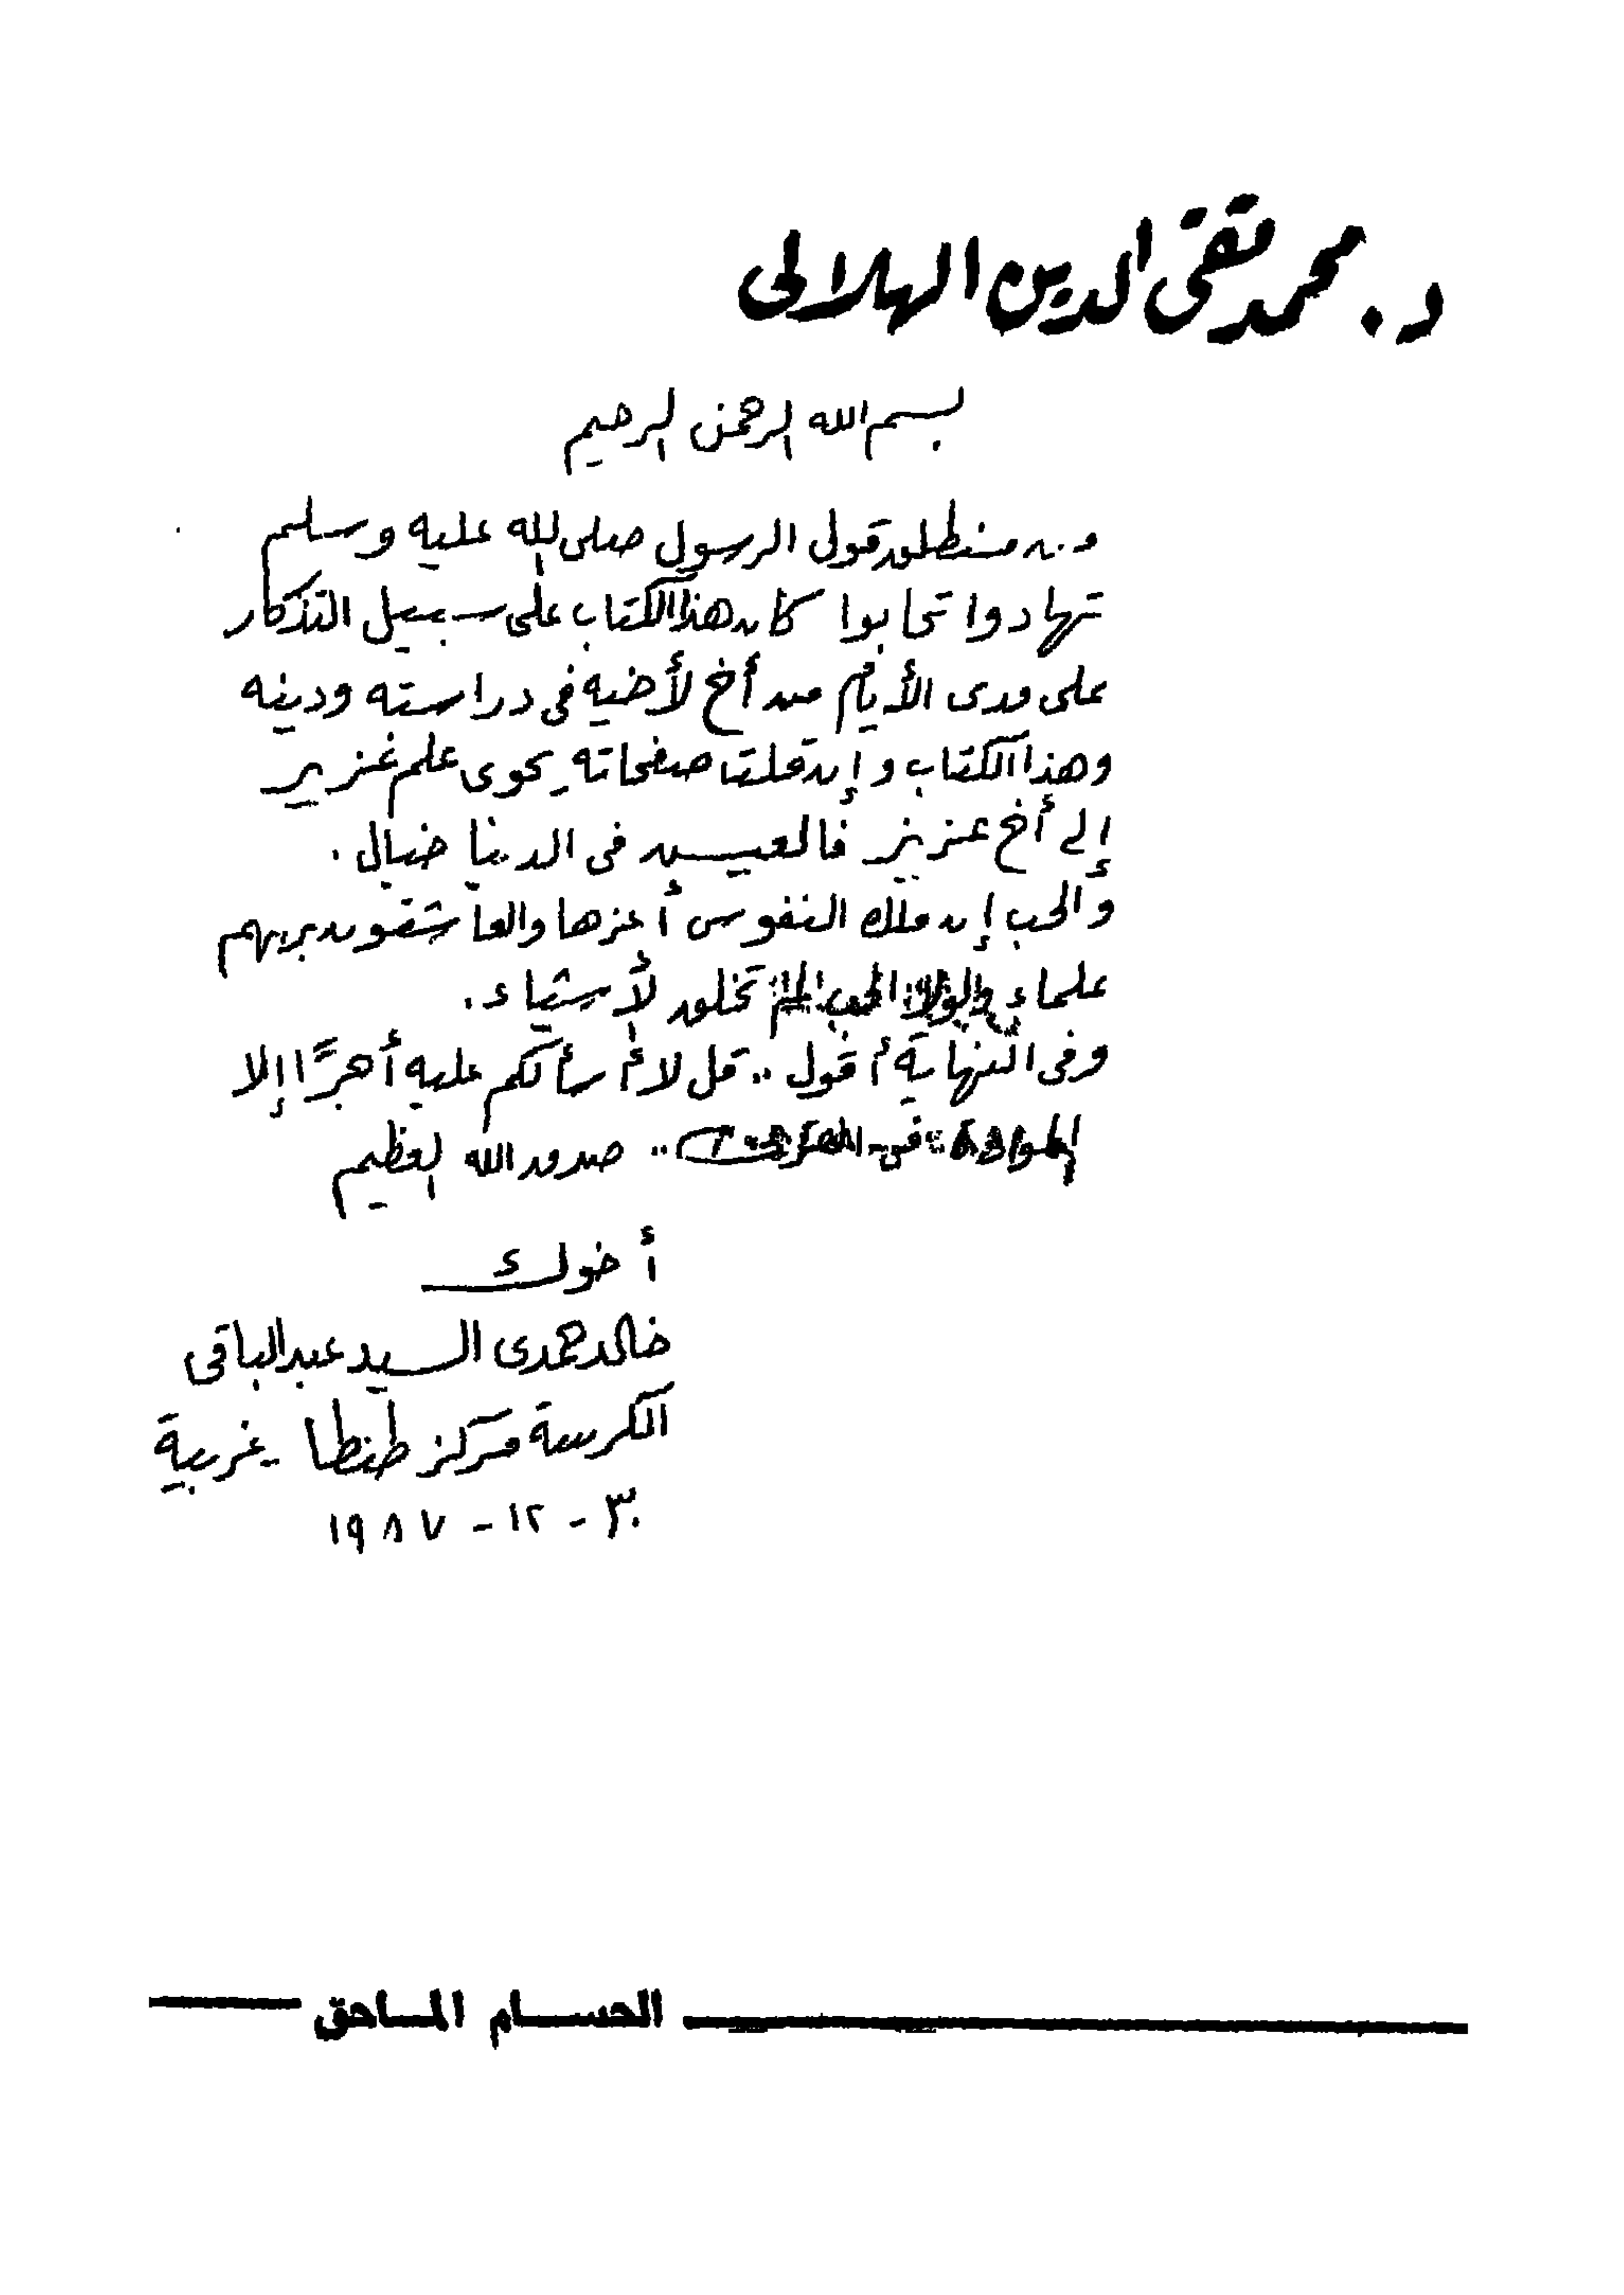 د. محمد تقى الدين الهلالى
بسم الله الرحمن الرحيم
من منطلق قول الرسول صلى الله عليه وسلم
تهادوا تحابوا كان هذا الكتاب على سبيل التذكار
على مدى الأيام من أخ لأخيه فى دراسته ودينه
وهذا الكتاب وإن قلت صفحاته يحوى علم غزير
إلى أخ عزيز فالعيش فى الدنيا خيال .
والحب إن ملك النفوس أعزها والعاشقون بربهم
علماء ولولا الحب لم تخلق لأشياء .
وفى النهاية أقول .. قل لا أسألكم عليه أجرًا إلا
المودة فى القربى .. صدق الله العظيم
أخوك
خالد حمدى السيد عبد الباقى
الكرسة مركز طنطا - غربية
٣٠ - ١٢ - ١٩٨٧
الحسام الماحق